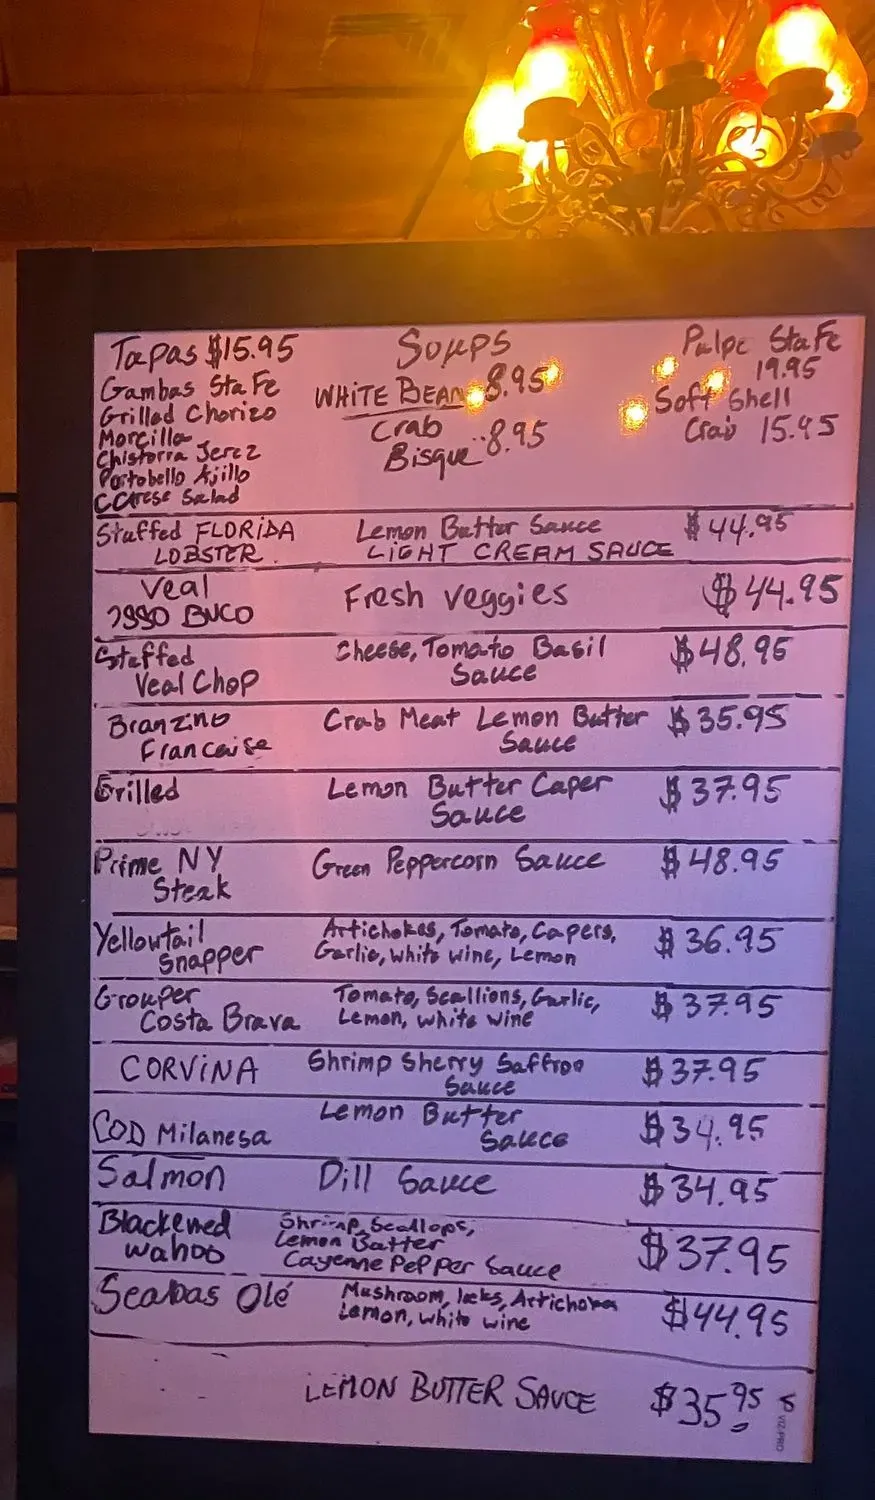 Tapas $15.95
Gambas Sta Fe
Grilled Chorizo
Morcilla
Chistorra Jerez
Portobello Ajillo
CCarese Salad
Soups
WHITE BEAN 8.95
Crab
Bisque ..8.95
Pulpe Sta Fe
19.95
Soft Shell
Crab 15.95
Stuffed FLORIDA
LOBSTER
Lemon Butter Sauce
LIGHT CREAM SAUCE
$44.95
Veal
OSSO BUCO
Fresh veggies
$44.95
Stuffed
Veal Chop
Cheese, Tomato Basil
Sauce
$48.95
Branzino
Francaise
Crab Meat Lemon Butter
Sauce
$35.95
Grilled
Lemon Butter Caper
Sauce
$37.95
Prime NY
Steak
Green Peppercorn Sauce
$48.95
Yellowtail
Snapper
Artichokes, Tomato, Capers,
Garlic, white wine, Lemon
$36.95
Grouper
Costa Brava
Tomato, Scallions, Garlic,
Lemon, white wine
$37.95
CORVINA
Shrimp Sherry Saffron
Sauce
$37.95
COD Milanesa
Lemon Butter
Sauce
$34.95
Salmon
Dill Sauce
$34.95
Blackened
wahoo
Shrimp, Scallops,
Lemon Butter
Cayenne Pepper Sauce
$37.95
Seabas Olé
Mushroom, leks, Artichokes
Lemon, white wine
$44.95
LEMON BUTTER SAUCE
$35.95
VIZ-PRO